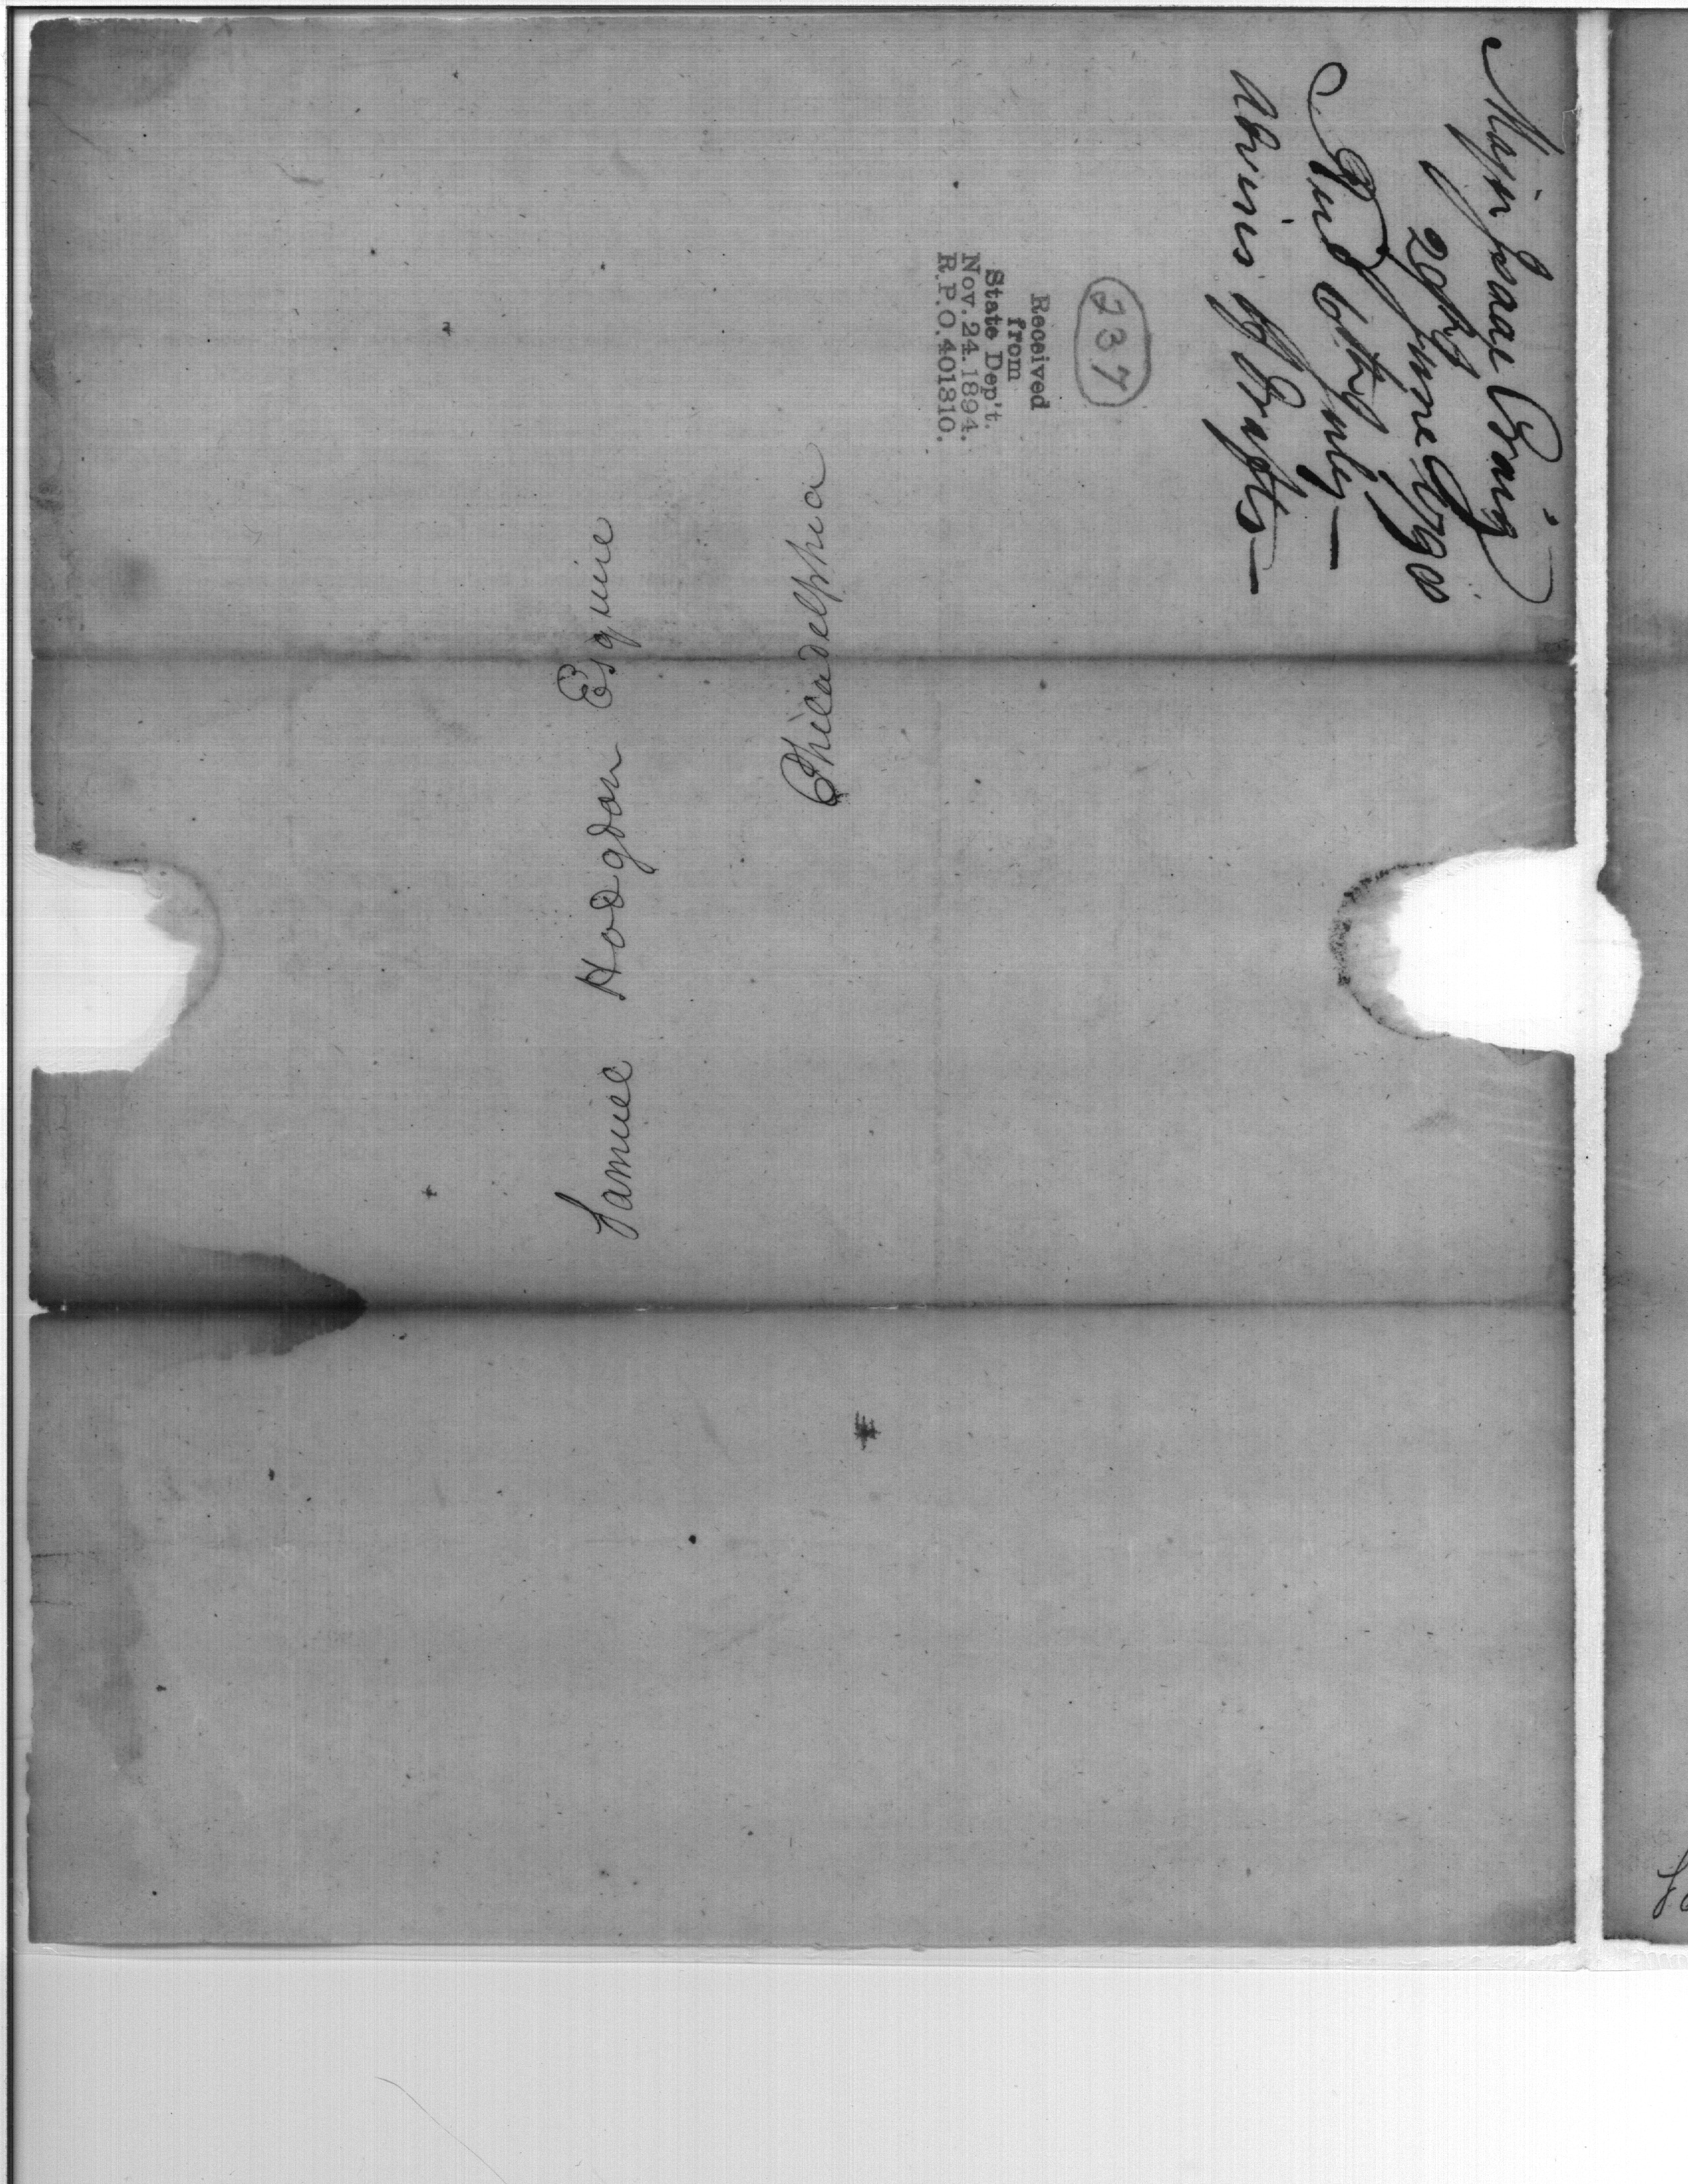 Major Isaac Craig
29th June 1798
Recd 6th July—
Advices of Drafts—
237
Received
from
State Dep't.
Nov. 24. 1894.
R.P.O. 401310.
Samuel Hodgdon Esquire
Philadelphia